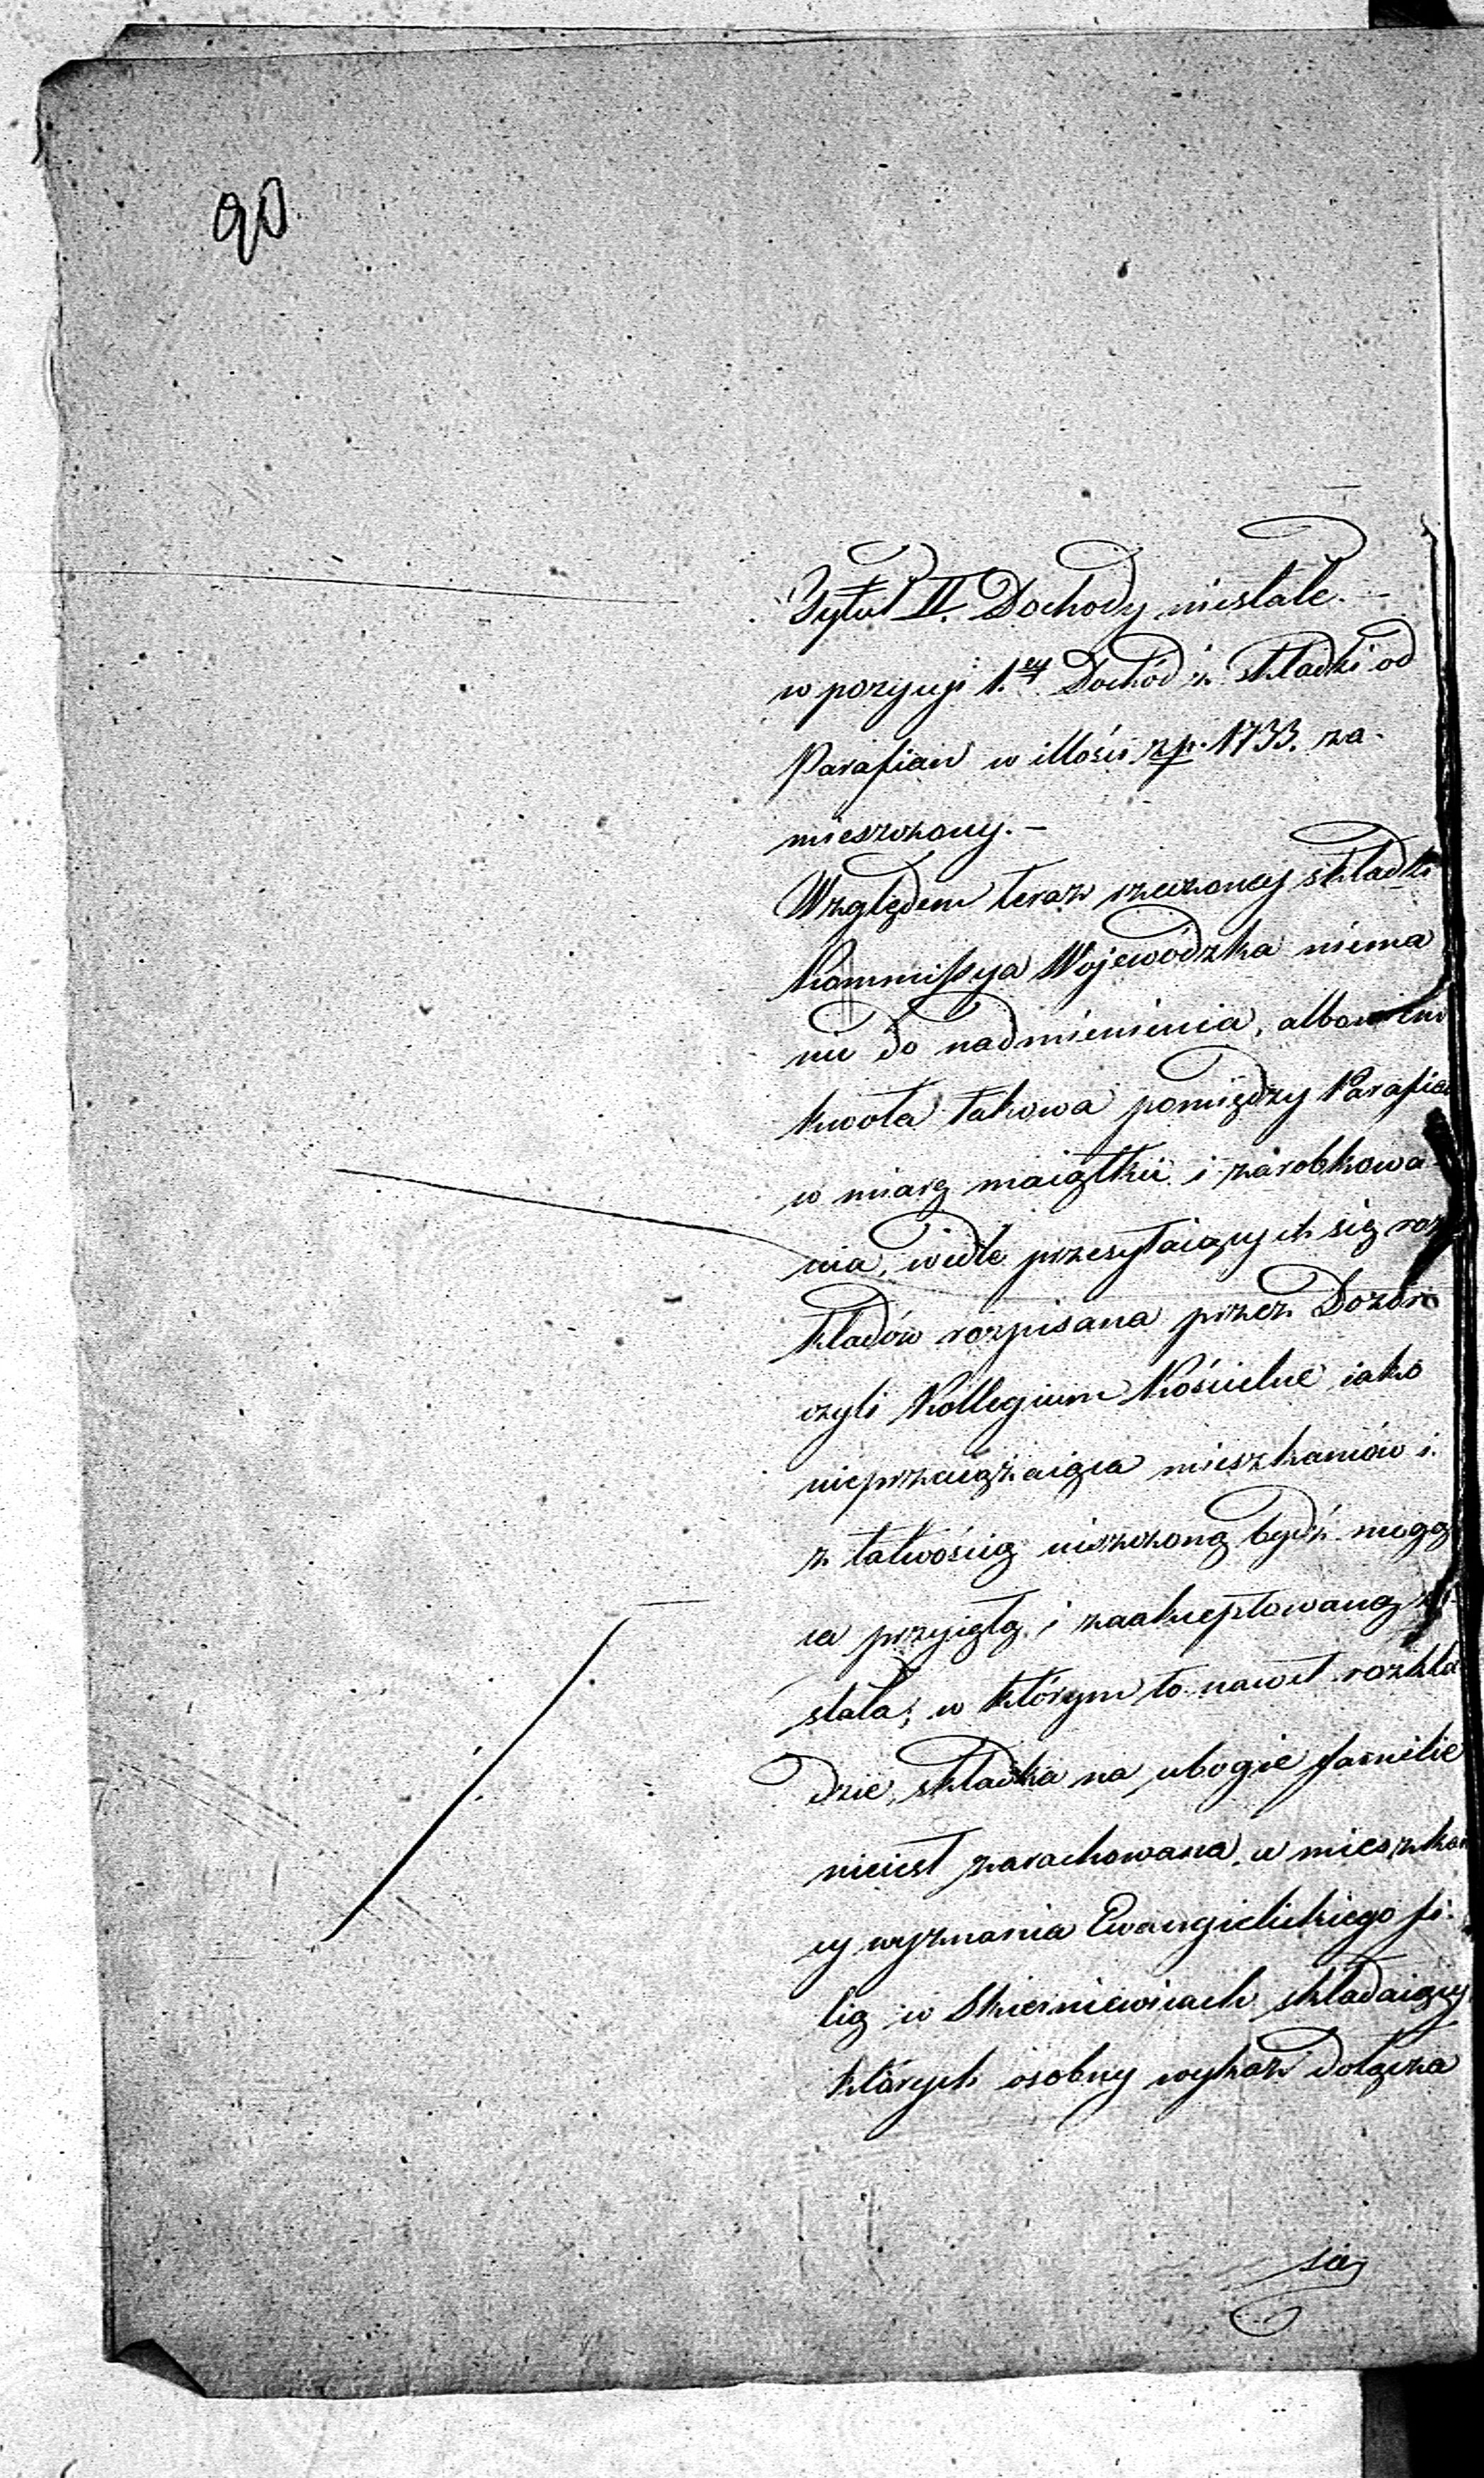 90
Tytuł II. Dochody niestałe. –
w pozycyi 1.ey Dochód z składki od
Parafian w illości zp. 1733. za-
mieszczony. –
Względem teraz rzeczoney składki
Kommissya Wojewódzka niema
nic do nadmienienia, albowiem
kwota takowa pomiędzy Parafian
w miarę maiątku i zarobkowa-
nia, wedle przesyłaiących się roz-
kładów rozpisana przez Dozór
czyli Kollegium Kościelne iako
nieprzeciążaiąca mieszkańców i
z łatwością uiszczoną bydź mogą-
ca przyiętą i zaakceptowaną zo-
stała; w którym to nawet rozkła-
dzie, składka na ubogie familie
nieiest zarachowana, a mieszkań-
cy wyznania Ewangielickiego fi-
lią w Skierniewicach składaiący
których osobny wykaz dołącza
się